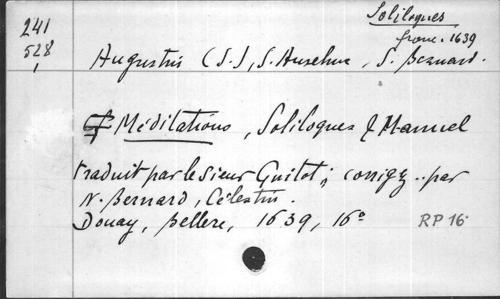 Soliloques
franc. 1639
241
528
1
Augustin (S.), S. Anselme, S. Bernard.
Méditations, Soliloques & Manuel
traduit par le Sieur Guitot; corrigz.. par
N. Bernard, Célestin.
Douay, Bellere, 1639, 16°
RP 16